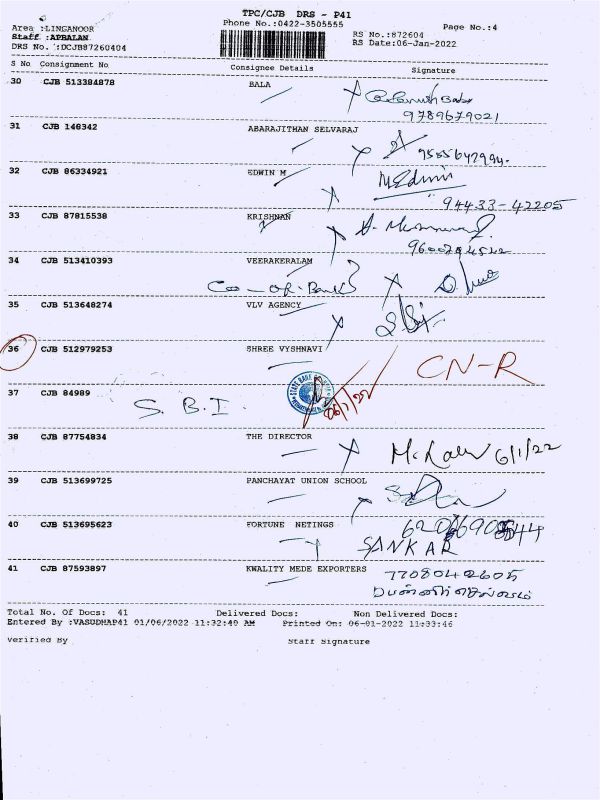 TPC/CJB DRS - P41
Area :LINGANOOR
Phone No.:0422-3505555
Page No.:4
Staff :APBALAN
RS No.:872604
DRS No. :DCJB87260404
RS Date:06-Jan-2022
S No Consignment No Consignee Details Signature
30 CJB 513384878 BALA
9789679021
31 CJB 148342 ABARAJITHAN SELVARAJ
32 CJB 86334921 EDWIN M M.Edwin
94433-42205
33 CJB 87815538 KRISHNAN
34 CJB 513410393 VEERAKERALAM
Co-OP. Bank
35 CJB 513648274 VLV AGENCY
36 CJB 512979253 SHREE VYSHNAVI CN-R
37 CJB 84989 STATE BANK
S.B.I. 06/1/22
38 CJB 87754834 THE DIRECTOR 6/1/22
39 CJB 513699725 PANCHAYAT UNION SCHOOL
40 CJB 513695623 FORTUNE NETINGS
SANKAR
41 CJB 87593897 KWALITY MEDE EXPORTERS 7708042605
Total No. Of Docs: 41 Delivered Docs: Non Delivered Docs:
Entered By :VASUDHAP41 01/06/2022 11:32:40 AM Printed On: 06-01-2022 11:33:46
Verified By Staff Signature